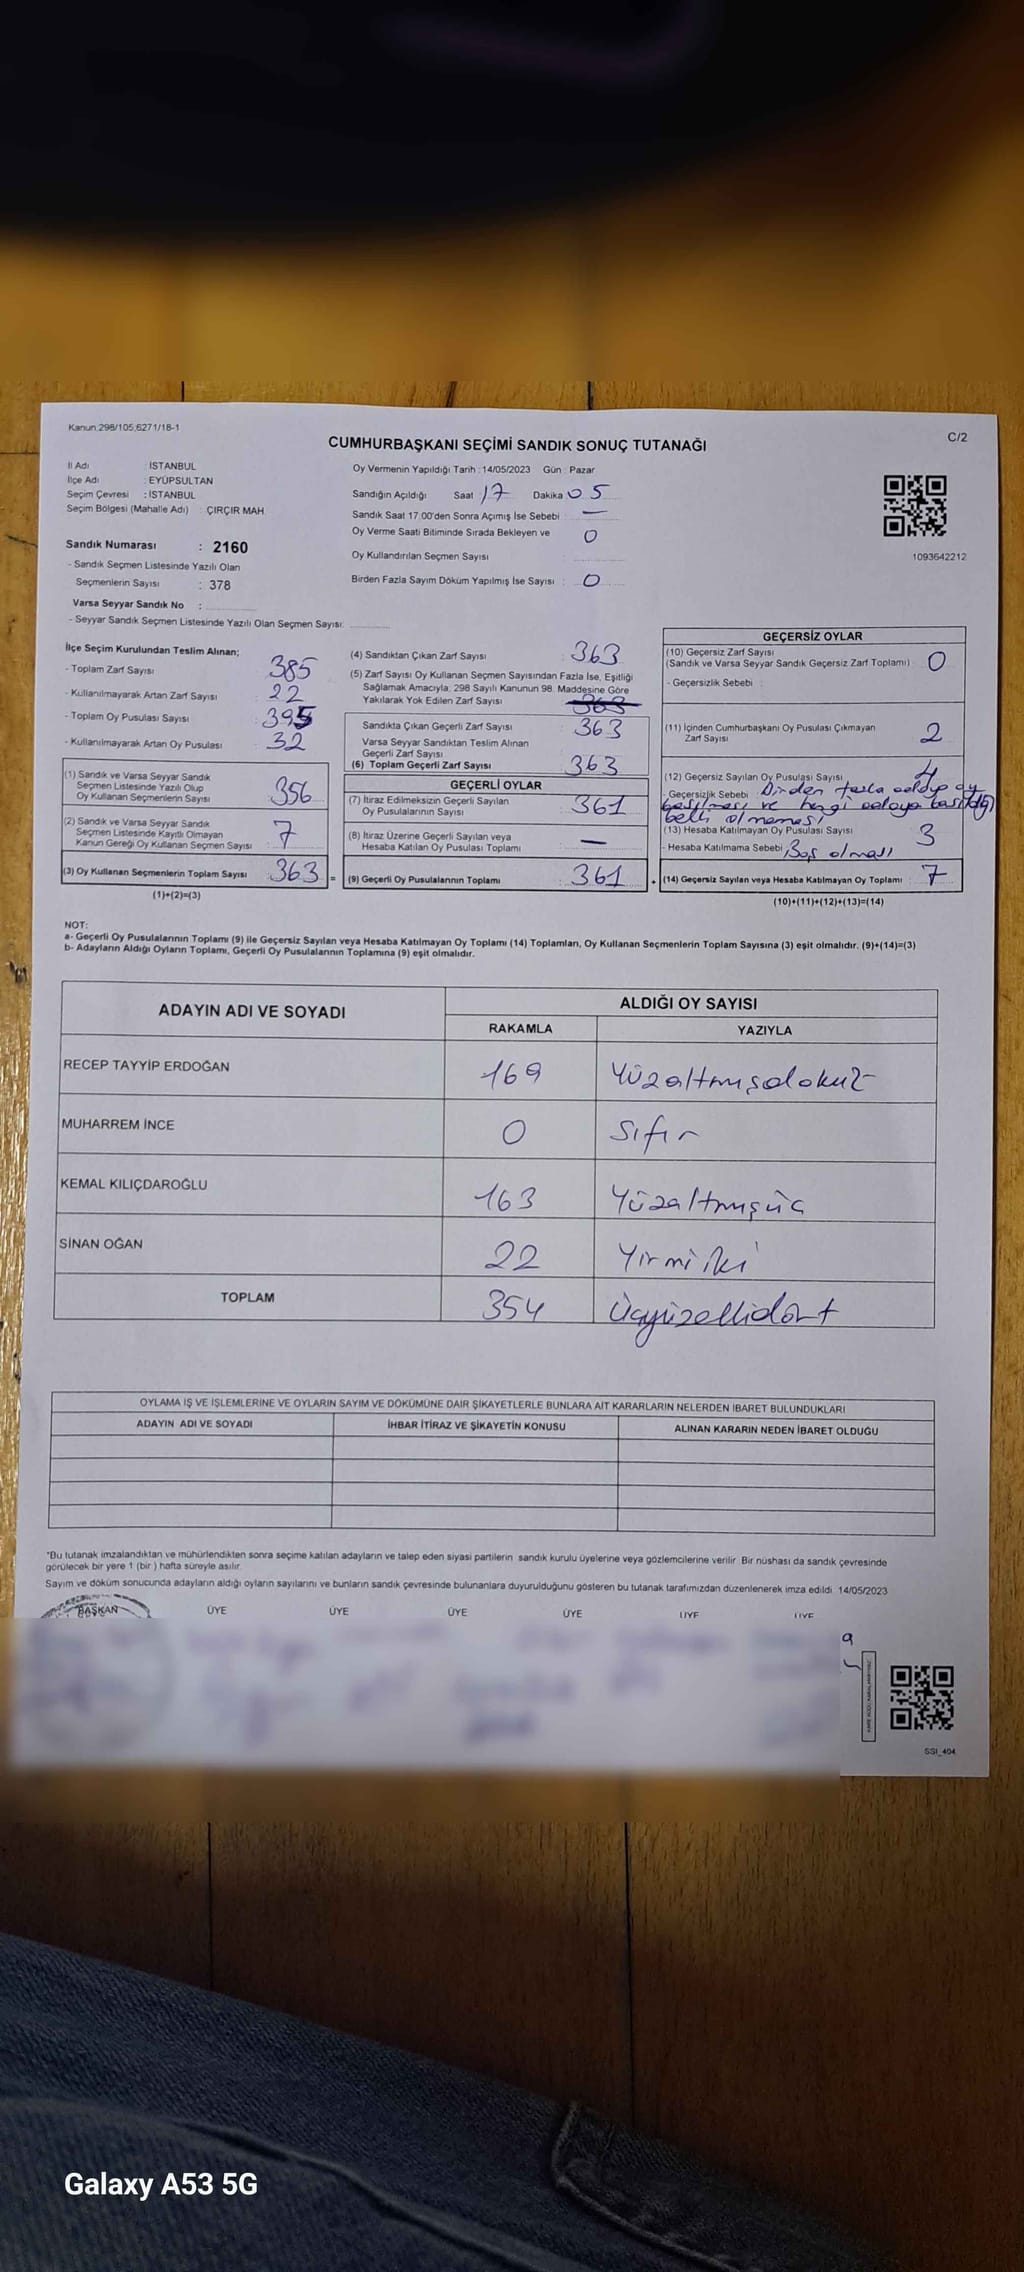 Kanun 298/105,6271/18-1
C/2
CUMHURBAŞKANI SEÇİMİ SANDIK SONUÇ TUTANAĞI
İl Adı : İSTANBUL
İlçe Adı : EYÜPSULTAN
Seçim Çevresi : İSTANBUL
Seçim Bölgesi (Mahalle Adı) : ÇIRÇIR MAH
Sandık Numarası : 2160
- Sandık Seçmen Listesinde Yazılı Olan
Seçmenlerin Sayısı : 378
Varsa Seyyar Sandık No :
- Seyyar Sandık Seçmen Listesinde Yazılı Olan Seçmen Sayısı:
Oy Vermenin Yapıldığı Tarih : 14/05/2023 Gün : Pazar
Sandığın Açıldığı Saat 17 Dakika 05
Sandık Saat 17:00'den Sonra Açımış İse Sebebi : —
Oy Verme Saati Bitiminde Sırada Bekleyen ve 0
Oy Kullandırılan Seçmen Sayısı
Birden Fazla Sayım Döküm Yapılmış İse Sayısı : 0
1093642212
İlçe Seçim Kurulundan Teslim Alınan;
- Toplam Zarf Sayısı 385
- Kullanılmayarak Artan Zarf Sayısı 22
- Toplam Oy Pusulası Sayısı 395
- Kullanılmayarak Artan Oy Pusulası 32
(1) Sandık ve Varsa Seyyar Sandık
Seçmen Listesinde Yazılı Olup
Oy Kullanan Seçmenlerin Sayısı 356
(2) Sandık ve Varsa Seyyar Sandık
Seçmen Listesinde Kayıtlı Olmayan
Kanun Gereği Oy Kullanan Seçmen Sayısı 7
(3) Oy Kullanan Seçmenlerin Toplam Sayısı 363 =
(1)+(2)=(3)
(4) Sandıktan Çıkan Zarf Sayısı 363
(5) Zarf Sayısı Oy Kullanan Seçmen Sayısından Fazla İse, Eşitliği
Sağlamak Amacıyla, 298 Sayılı Kanunun 98. Maddesine Göre
Yakılarak Yok Edilen Zarf Sayısı 363
Sandıkta Çıkan Geçerli Zarf Sayısı 363
Varsa Seyyar Sandıktan Teslim Alınan
Geçerli Zarf Sayısı
(6) Toplam Geçerli Zarf Sayısı 363
GEÇERLİ OYLAR
(7) İtiraz Edilmeksizin Geçerli Sayılan
Oy Pusulalarının Sayısı 361
(8) İtiraz Üzerine Geçerli Sayılan veya
Hesaba Katılan Oy Pusulası Toplamı —
(9) Geçerli Oy Pusulalarının Toplamı 361 +
GEÇERSİZ OYLAR
(10) Geçersiz Zarf Sayısı
(Sandık ve Varsa Seyyar Sandık Geçersiz Zarf Toplamı) 0
- Geçersizlik Sebebi :
(11) İçinden Cumhurbaşkanı Oy Pusulası Çıkmayan
Zarf Sayısı 2
(12) Geçersiz Sayılan Oy Pusulası Sayısı
- Geçersizlik Sebebi Birden fazla adaya oy
basılması ve hangi adaya bastığı
belli olmaması
(13) Hesaba Katılmayan Oy Pusulası Sayısı 3
- Hesaba Katılmama Sebebi Boş olması
(14) Geçersiz Sayılan veya Hesaba Katılmayan Oy Toplamı 7
(10)+(11)+(12)+(13)=(14)
NOT:
a- Geçerli Oy Pusulalarının Toplamı (9) ile Geçersiz Sayılan veya Hesaba Katılmayan Oy Toplamı (14) Toplamları, Oy Kullanan Seçmenlerin Toplam Sayısına (3) eşit olmalıdır. (9)+(14)=(3)
b- Adayların Aldığı Oyların Toplamı, Geçerli Oy Pusulalarının Toplamına (9) eşit olmalıdır.
ADAYIN ADI VE SOYADI
ALDIĞI OY SAYISI
RAKAMLA YAZIYLA
RECEP TAYYİP ERDOĞAN 169 Yüzaltmışdokuz
MUHARREM İNCE 0 Sıfır
KEMAL KILIÇDAROĞLU 163 Yüzaltmışüç
SİNAN OĞAN 22 Yirmi iki
TOPLAM 354 Üçyüzellidört
OYLAMA İŞ VE İŞLEMLERİNE VE OYLARIN SAYIM VE DÖKÜMÜNE DAİR ŞİKAYETLERLE BUNLARA AİT KARARLARIN NELERDEN İBARET BULUNDUKLARI
ADAYIN ADI VE SOYADI İHBAR İTİRAZ VE ŞİKAYETİN KONUSU ALINAN KARARIN NEDEN İBARET OLDUĞU
*Bu tutanak imzalandıktan ve mühürlendikten sonra seçime katılan adayların ve talep eden siyasi partilerin sandık kurulu üyelerine veya gözlemcilerine verilir. Bir nüshası da sandık çevresinde
görülecek bir yere 1 (bir ) hafta süreyle asılır.
Sayım ve döküm sonucunda adayların aldığı oyların sayılarını ve bunların sandık çevresinde bulunanlara duyurulduğunu gösteren bu tutanak tarafımızdan düzenlenerek imza edildi. 14/05/2023
BAŞKAN ÜYE ÜYE ÜYE ÜYE ÜYE ÜYE
SSI_404
Galaxy A53 5G